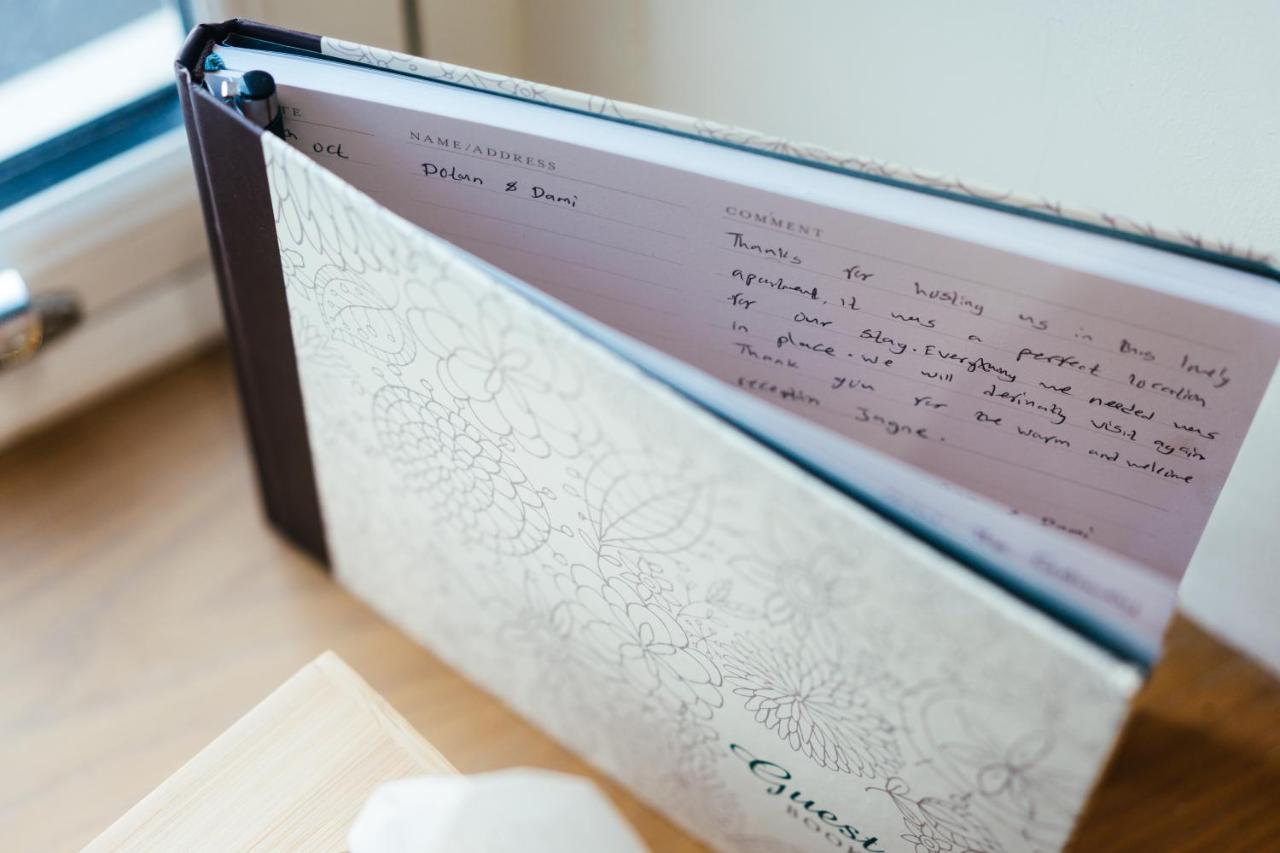 NAME/ADDRESS
oct
Dotun & Dami
COMMENT
Thanks for hosting us in this lovely
apartment, it was a perfect location
for our stay. Everything we needed was
in place. we will definatly visit again
Thank you for the warm and welcome
reception Jayne.
Dami
Guest
BOOK